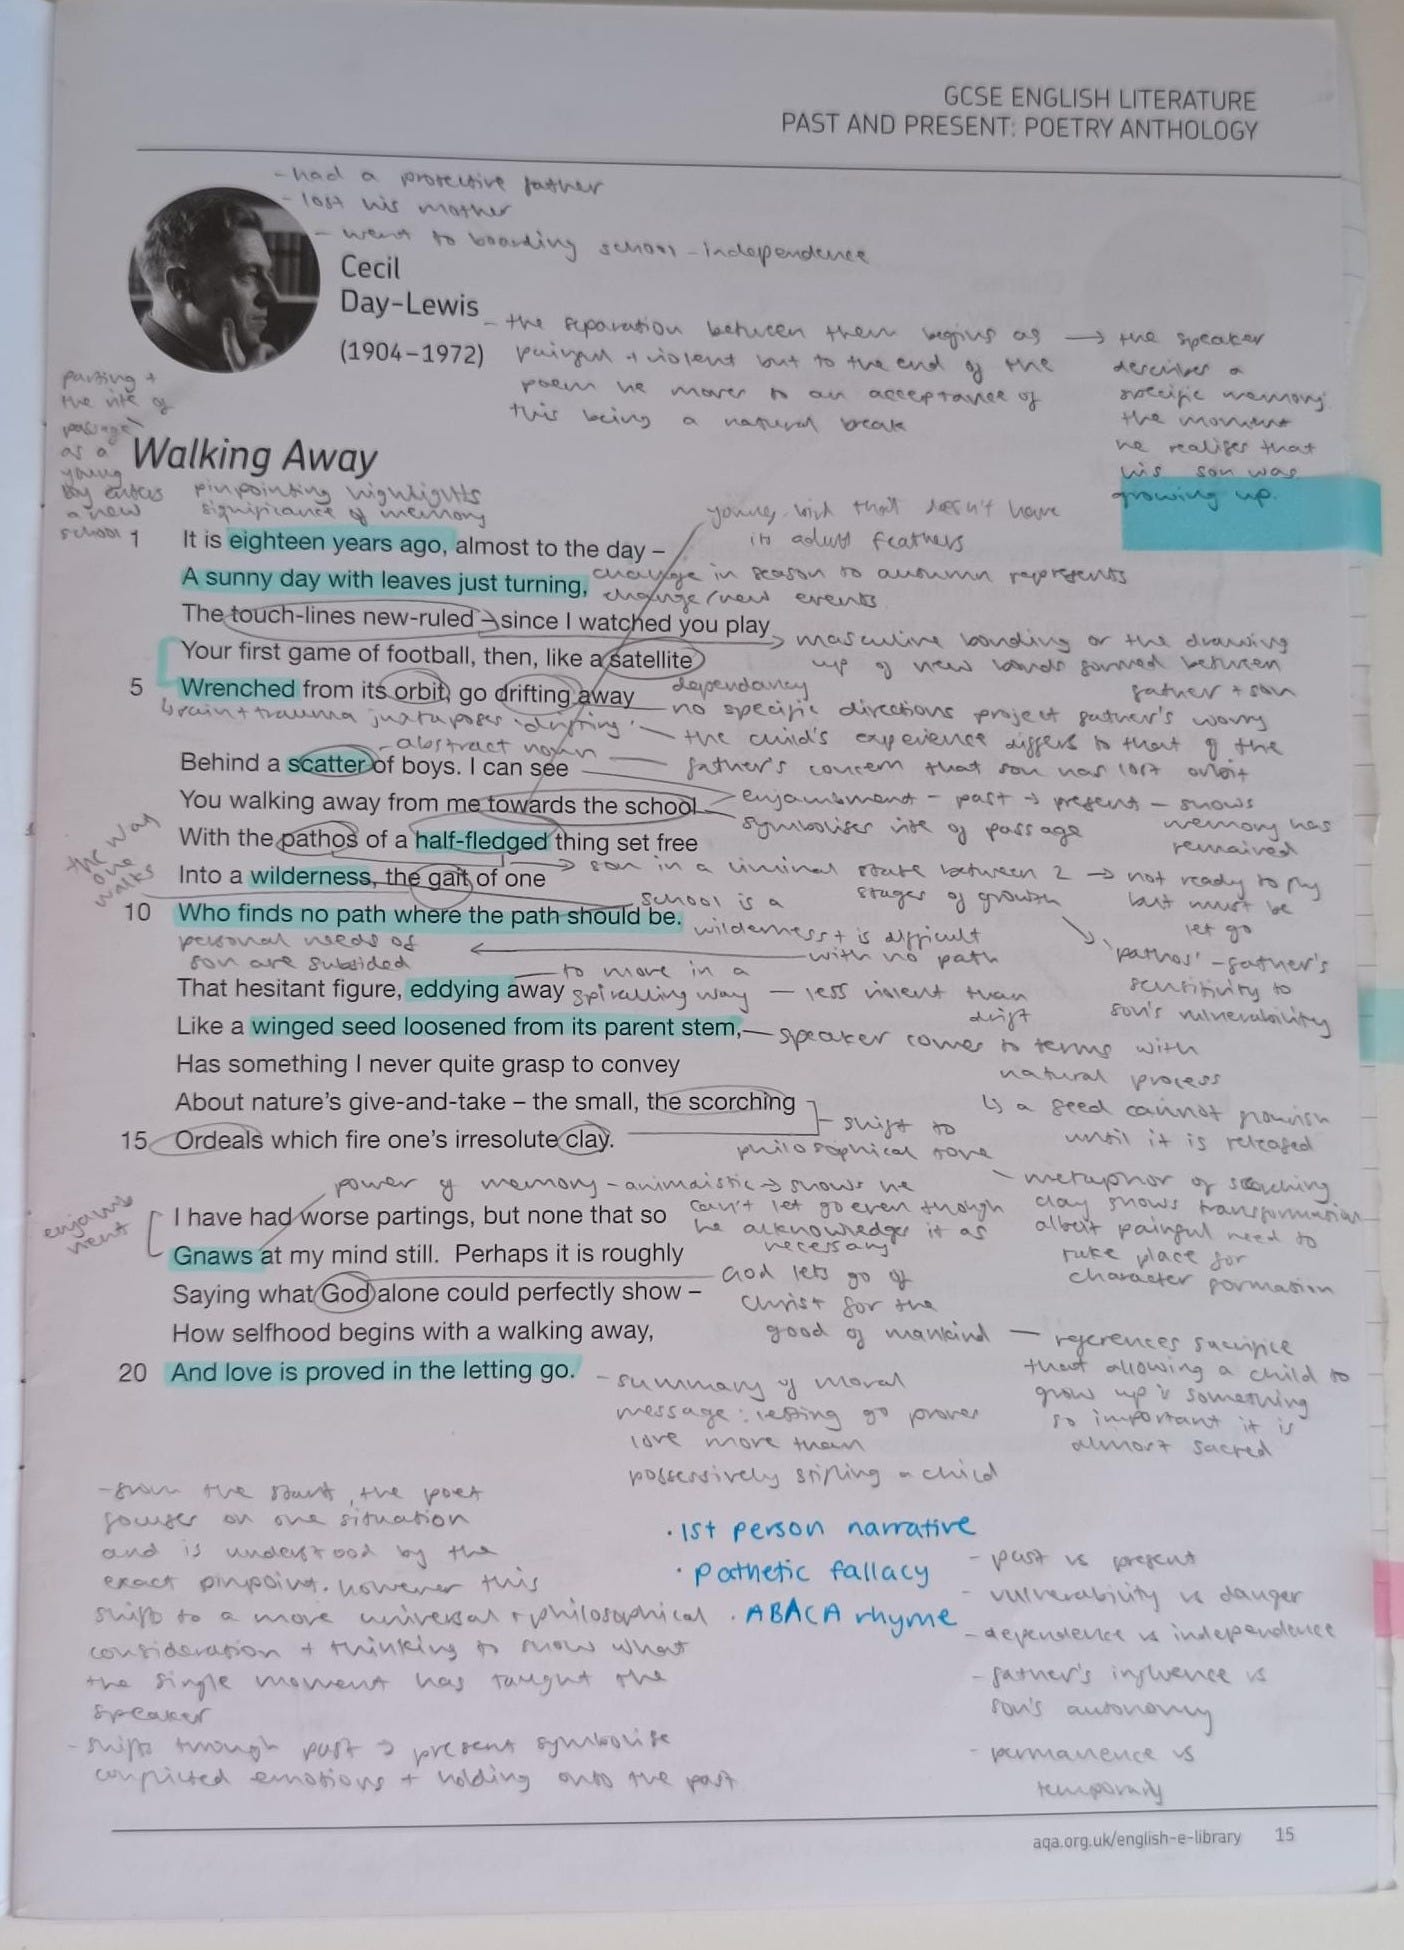 GCSE ENGLISH LITERATURE
PAST AND PRESENT: POETRY ANTHOLOGY
- had a protective father
- lost his mother
- went to boarding school - independence
Cecil
Day-Lewis
(1904–1972)
- the separation between them begins as
painful + violent but to the end of the
poem he moves to an acceptance of
this being a natural break
→ the speaker
describes a
specific memory
the moment
he realises that
his son was
growing up.
parting +
the rite of
passage
as a
young
boy enters
a new
school
Walking Away
pinpointing highlights
significance of memory
young bird that doesn't have
its adult feathers
1 It is eighteen years ago, almost to the day –
A sunny day with leaves just turning,
change in season to autumn represents
change/new events
The touch-lines new-ruled – since I watched you play
masculine bonding or the drawing
up of new bonds formed between
father + son
Your first game of football, then, like a satellite
5 Wrenched from its orbit, go drifting away
dependancy
no specific directions project father's worry
pain + trauma juxtaposes 'drifting'
- the child's experience differs to that of the
father's concern that son has lost orbit
- abstract noun
Behind a scatter of boys. I can see
You walking away from me towards the school
enjambment - past → present - shows
memory has
remained
symbolises rite of passage
With the pathos of a half-fledged thing set free
→ son in a liminal state between 2
stages of growth
→ not ready to fly
but must be
let go
the way
one
walks
Into a wilderness, the gait of one
10 Who finds no path where the path should be.
school is a
wilderness + is difficult
with no path
personal needs of
son are subsided
'pathos' - father's
sensitivity to
son's vulnerability
That hesitant figure, eddying away
to move in a
spiralling way - less violent than
drift
Like a winged seed loosened from its parent stem,
- speaker comes to terms with
natural process
↳ a seed cannot flourish
until it is released
Has something I never quite grasp to convey
About nature's give-and-take – the small, the scorching
15 Ordeals which fire one's irresolute clay.
- shift to
philosophical tone
- metaphor of scorching
clay shows transformation
albeit painful need to
take place for
character formation
power of memory - animalistic → shows he
can't let go even though
he acknowledges it as
necessary
enjamb
ment
I have had worse partings, but none that so
Gnaws at my mind still. Perhaps it is roughly
Saying what God alone could perfectly show –
God lets go of
Christ for the
good of mankind
- references sacrifice
that allowing a child to
grow up is something
so important it is
almost sacred
How selfhood begins with a walking away,
20 And love is proved in the letting go.
- summary of moral
message: letting go proves
love more than
possessively stifling a child
- from the start, the poet
focuses on one situation
and is understood by the
exact pinpoint. however this
shifts to a more universal + philosophical
consideration + thinking to show what
the single moment has taught the
speaker
- shifts through past → present symbolise
conflicted emotions + holding onto the past
· 1st person narrative
· pathetic fallacy
· ABACA rhyme
- past vs present
- vulnerability vs danger
- dependence vs independence
- father's influence vs
son's autonomy
- permanence vs
temporary
aqa.org.uk/english-e-library 15